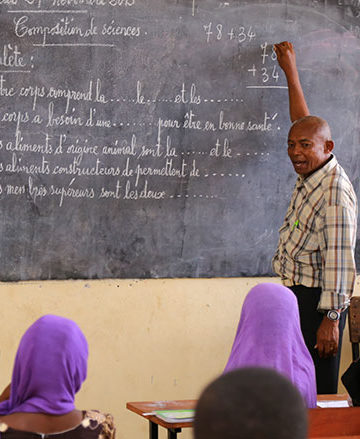 Novembre 2015
Composition de sciences.
78 + 34
78
+ 34
lète :
tre corps comprend la ...... le ..... et les ..........
corps a besoin d'une ......... pour être en bonne santé.
s aliments d'origine animal, sont la ..... et le ...
s aliments constructeurs de permettent de ......
s membres supérieurs sont les deux ..........